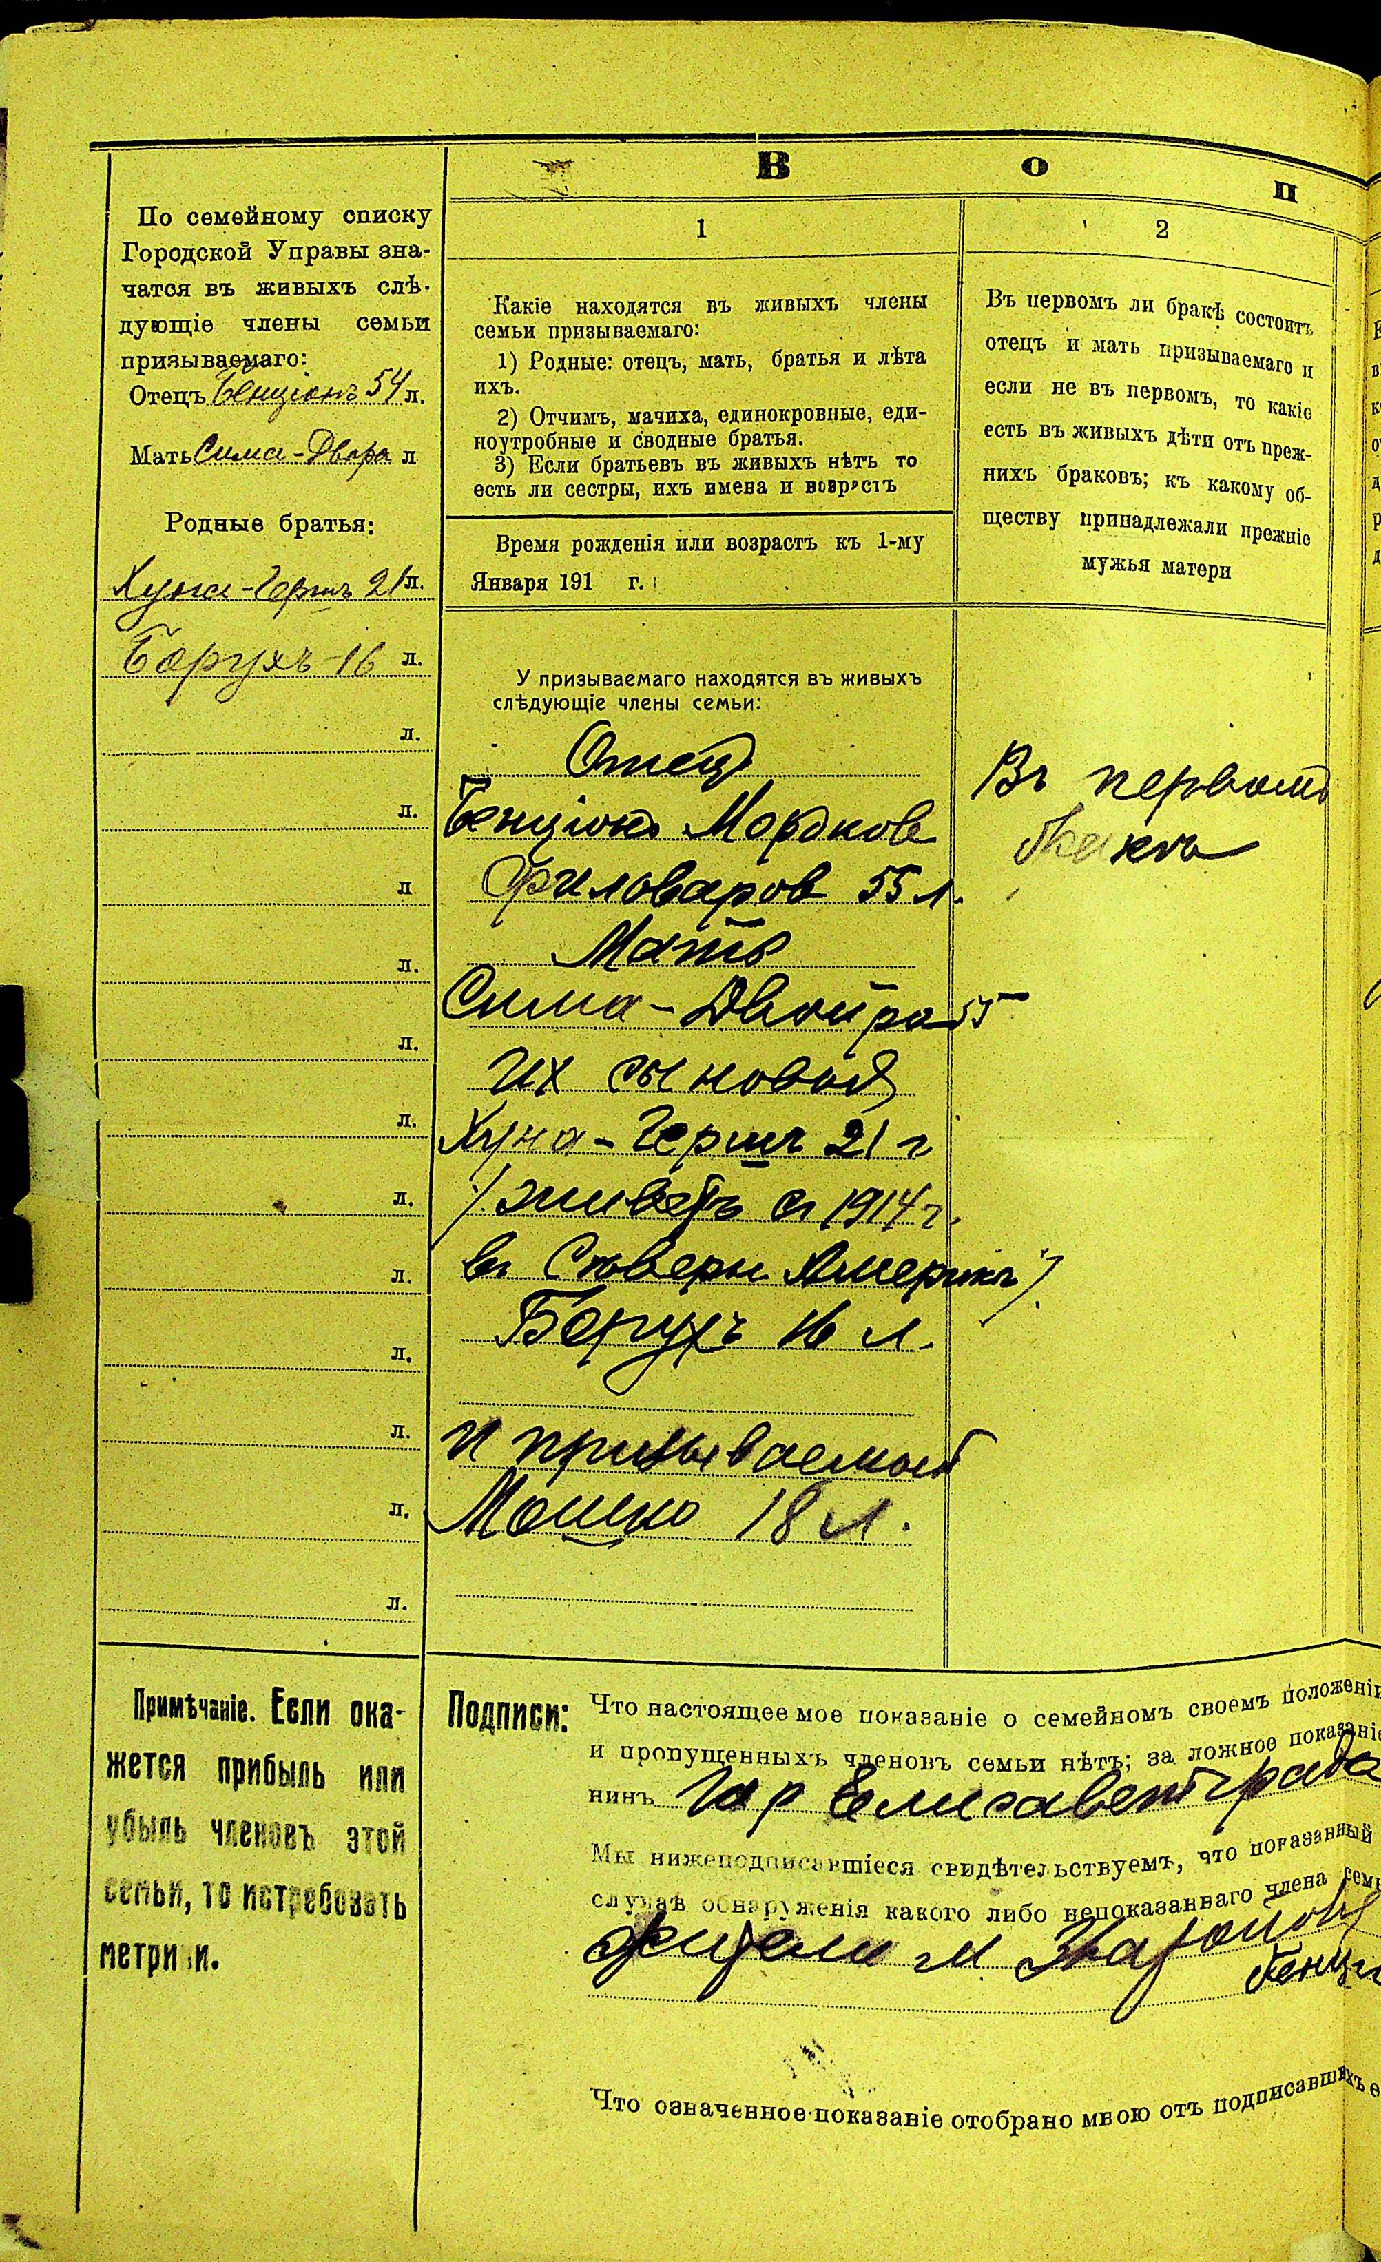 В о п
По семейному списку
Городской Управы зна-
чатся въ живыхъ слѣ-
дующіе члены семьи
призываемаго:
Отецъ Бенціонъ 54 л.
Мать Сима-Двора л
Родные братья:
Хуна-Гершъ 21 л.
Борухъ-16 л.
л.
л.
л
л.
л.
л.
л.
л.
л.
л.
л.
л.
1
Какіе находятся въ живыхъ члены
семьи призываемаго:
1) Родные: отецъ, мать, братья и лѣта
ихъ.
2) Отчимъ, мачиха, единокровные, еди-
ноутробные и сводные братья.
3) Если братьевъ въ живыхъ нѣтъ то
есть ли сестры, ихъ имена и возрастъ
Время рожденія или возрастъ къ 1-му
Января 191 г.
У призываемаго находятся въ живыхъ
слѣдующіе члены семьи:
Отец
Бенціонъ Мордков
Филоваров 55 л.
Мать
Сима-Двойра 55
Их сыновья
Хуна-Гершъ 21 г
/. живетъ съ 1914 г.
въ Сѣверн Америкѣ /.
Борухъ 16 л.
и призываемый
Мошко 18 л.
2
Въ первомъ ли бракѣ состоитъ
отецъ и мать призываемаго и
если не въ первомъ, то какіе
есть въ живыхъ дѣти отъ преж-
нихъ браковъ; къ какому об-
ществу принадлежали прежніе
мужья матери
Въ первомъ
бракѣ
Примѣчаніе. Если ока-
жется прибыль или
убыль членовъ этой
семьи, то истребовать
метрики.
Подписи:
Что настоящее мое показаніе о семейномъ своемъ положені
и пропущенныхъ членовъ семьи нѣтъ; за ложное показаніе
нинъ гор Елисаветграда
Мы нижеподписавшіеся свидѣтельствуемъ, что показанный
случаѣ обнаруженія какого либо непоказаннаго члена семь
жители м.
Бенці
Что означенное показаніе отобрано мною отъ подписавшихъ е